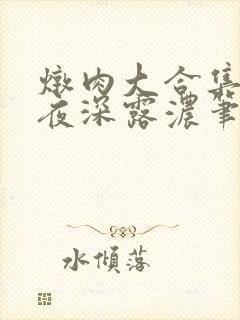 燉肉大合集
夜深露濃筆
水傾落